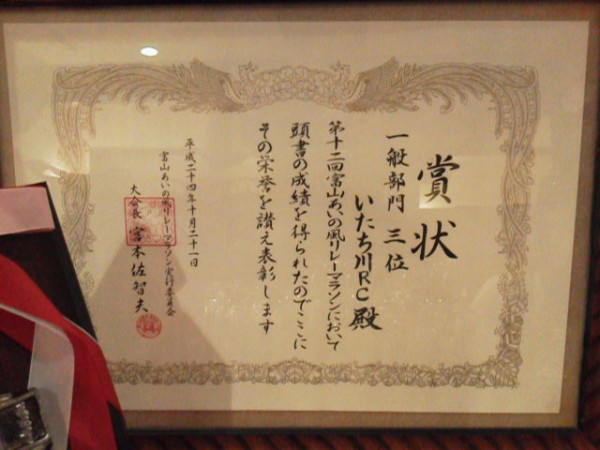 賞状
一般部門 三位
いたち川RC殿
第十二回富山あいの風リレーマラソンにおいて
頭書の成績を得られたのでここに
その栄誉を讃え表彰します
平成二十四年十月二十一日
富山あいの風リレーマラソン実行委員会
大会長 宮本佐智夫